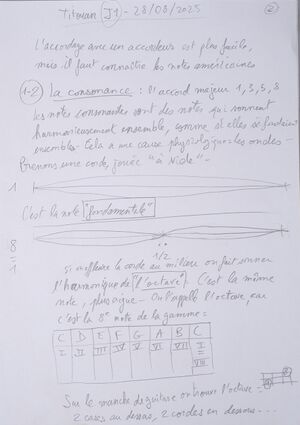 Titouan J1 - 28/08/2025 2
L'accordage avec un accordeur est plus facile,
mais il faut connaître les notes américaines
1-2 La consonance : et accord majeur 1, 3, 5, 8
Les notes consonantes sont des notes qui sonnent
harmonieusement ensemble, comme si elles se fondaient
ensemble. Cela a une cause physiologique : les ondes -
Prenons une corde, jouée "à vide" -
1
C'est la note "fondamentale"
8
=
1
1/2
si on effleure la corde au milieu on fait sonner
l'harmonique de "l'octave" C'est la même
note, plus aigue - On l'appelle l'octave, car
c'est la 8e note de la gamme :
C D E F G A B C
I II III IV V VI VII I
=
VIII
Sur le manche de guitare on trouve l'octave
2 cases au dessus, 2 cordes en dessous ...